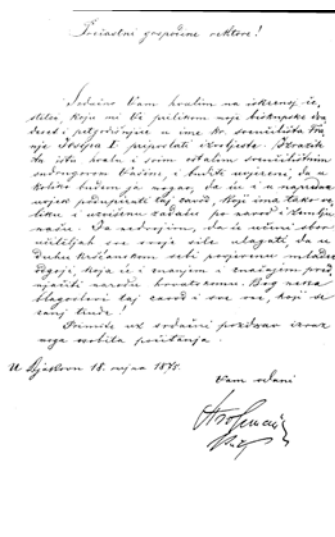 Prečastni gospodine rektore!
Srdačno Vam hvalim na iskrenoj če-
stitci, koju mi Vi prilikom moje biskupske
deset i petgodišnjice u ime kr. sveučilišta Fra-
nje Josipa I. pripovlati izvoljeste. Izrazite
tu istu hvalu i svim ostalim sveučilištnim
drugovom Vašim, i budite uvjereni, da u
koliko budem ja mogao, da ću i u napredak
uvjek podupirati taj zavod, koji ima tako ve-
liku i uzvišenu zadaću po narod i zemlju
našu. Ja nedvojim, da će učeni sbor
učiteljah sve svoje sile ulagati, da u
duhu kršćanskom sebi povjerenu mladež
odgoji, koja će i znanjem i značajem pred-
njačiti narodu hrvatskomu. Bog neka
blagoslovi taj zavod i sve one, koji se
zanj trude!
Primite uz srdačni pozdrav izraz
moga osobita počitanja.
U Djakovu 18. rujna 1875.
Vam odani